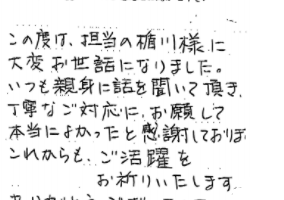 この度は、担当の楯川様に
大変お世話になりました。
いつも親身に話を聞いて頂き、
丁寧なご対応に、お願して
本当によかったと感謝しておりま
これからも、ご活躍を
お祈りいたします